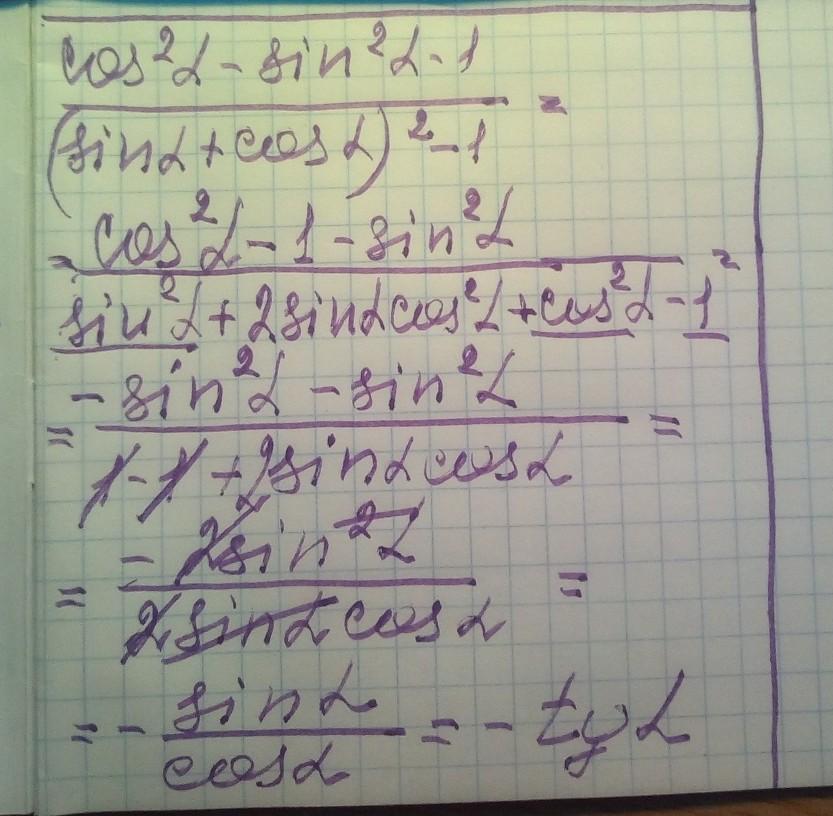 cos²α - sin²α - 1
(sinα + cosα)² - 1 =
= cos²α - 1 - sin²α
sin²α + 2sinαcos²α + cos²α - 1 =
= -sin²α - sin²α =
1 - 1 + 2sinαcosα
= -2sin²α =
2sinαcosα
= - sinα = - tgα
cosα